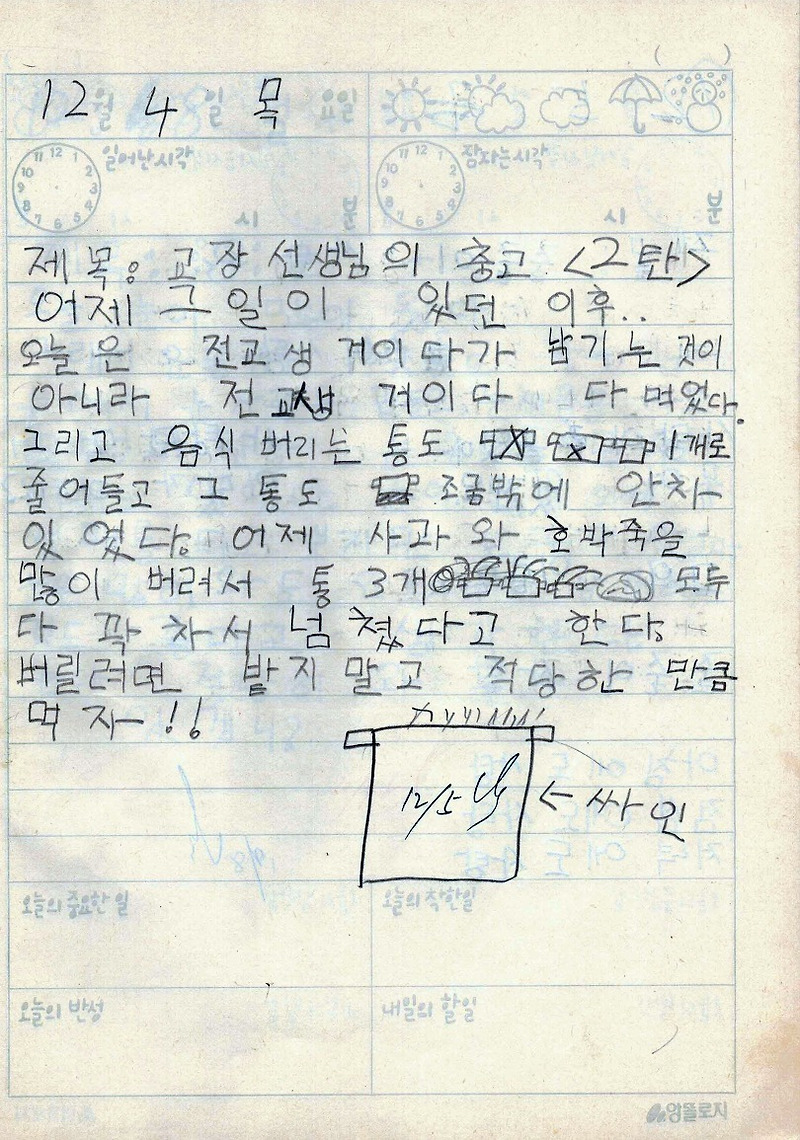 ( )
12월 4일 목요일
11 12 1 10 2 9 3 8 4 7 6 5 일어난시각 시 분
11 12 1 10 2 9 3 8 4 7 6 5 잠자는시각 시 분
제목: 교장 선생님의 충고 <2탄>
어제 그 일이 있던 이후..
오늘은 전교생 거이다가 남기는 것이
아니라 전교생 거이다 다 먹었다.
그리고 음식 버리는 통도 1개로
줄어들고 그 통도 조금밖에 안차
있었다. 어제 사과와 호박죽을
많이 버려서 통 3개 모두
다 꽉 차서 넘쳤다고 한다.
버릴려면 받지 말고 적당한 만큼
먹자!!
12/5
← 싸인
오늘의 중요한 일
오늘의 착한일
오늘의 반성
내일의 할일
양뿔로지